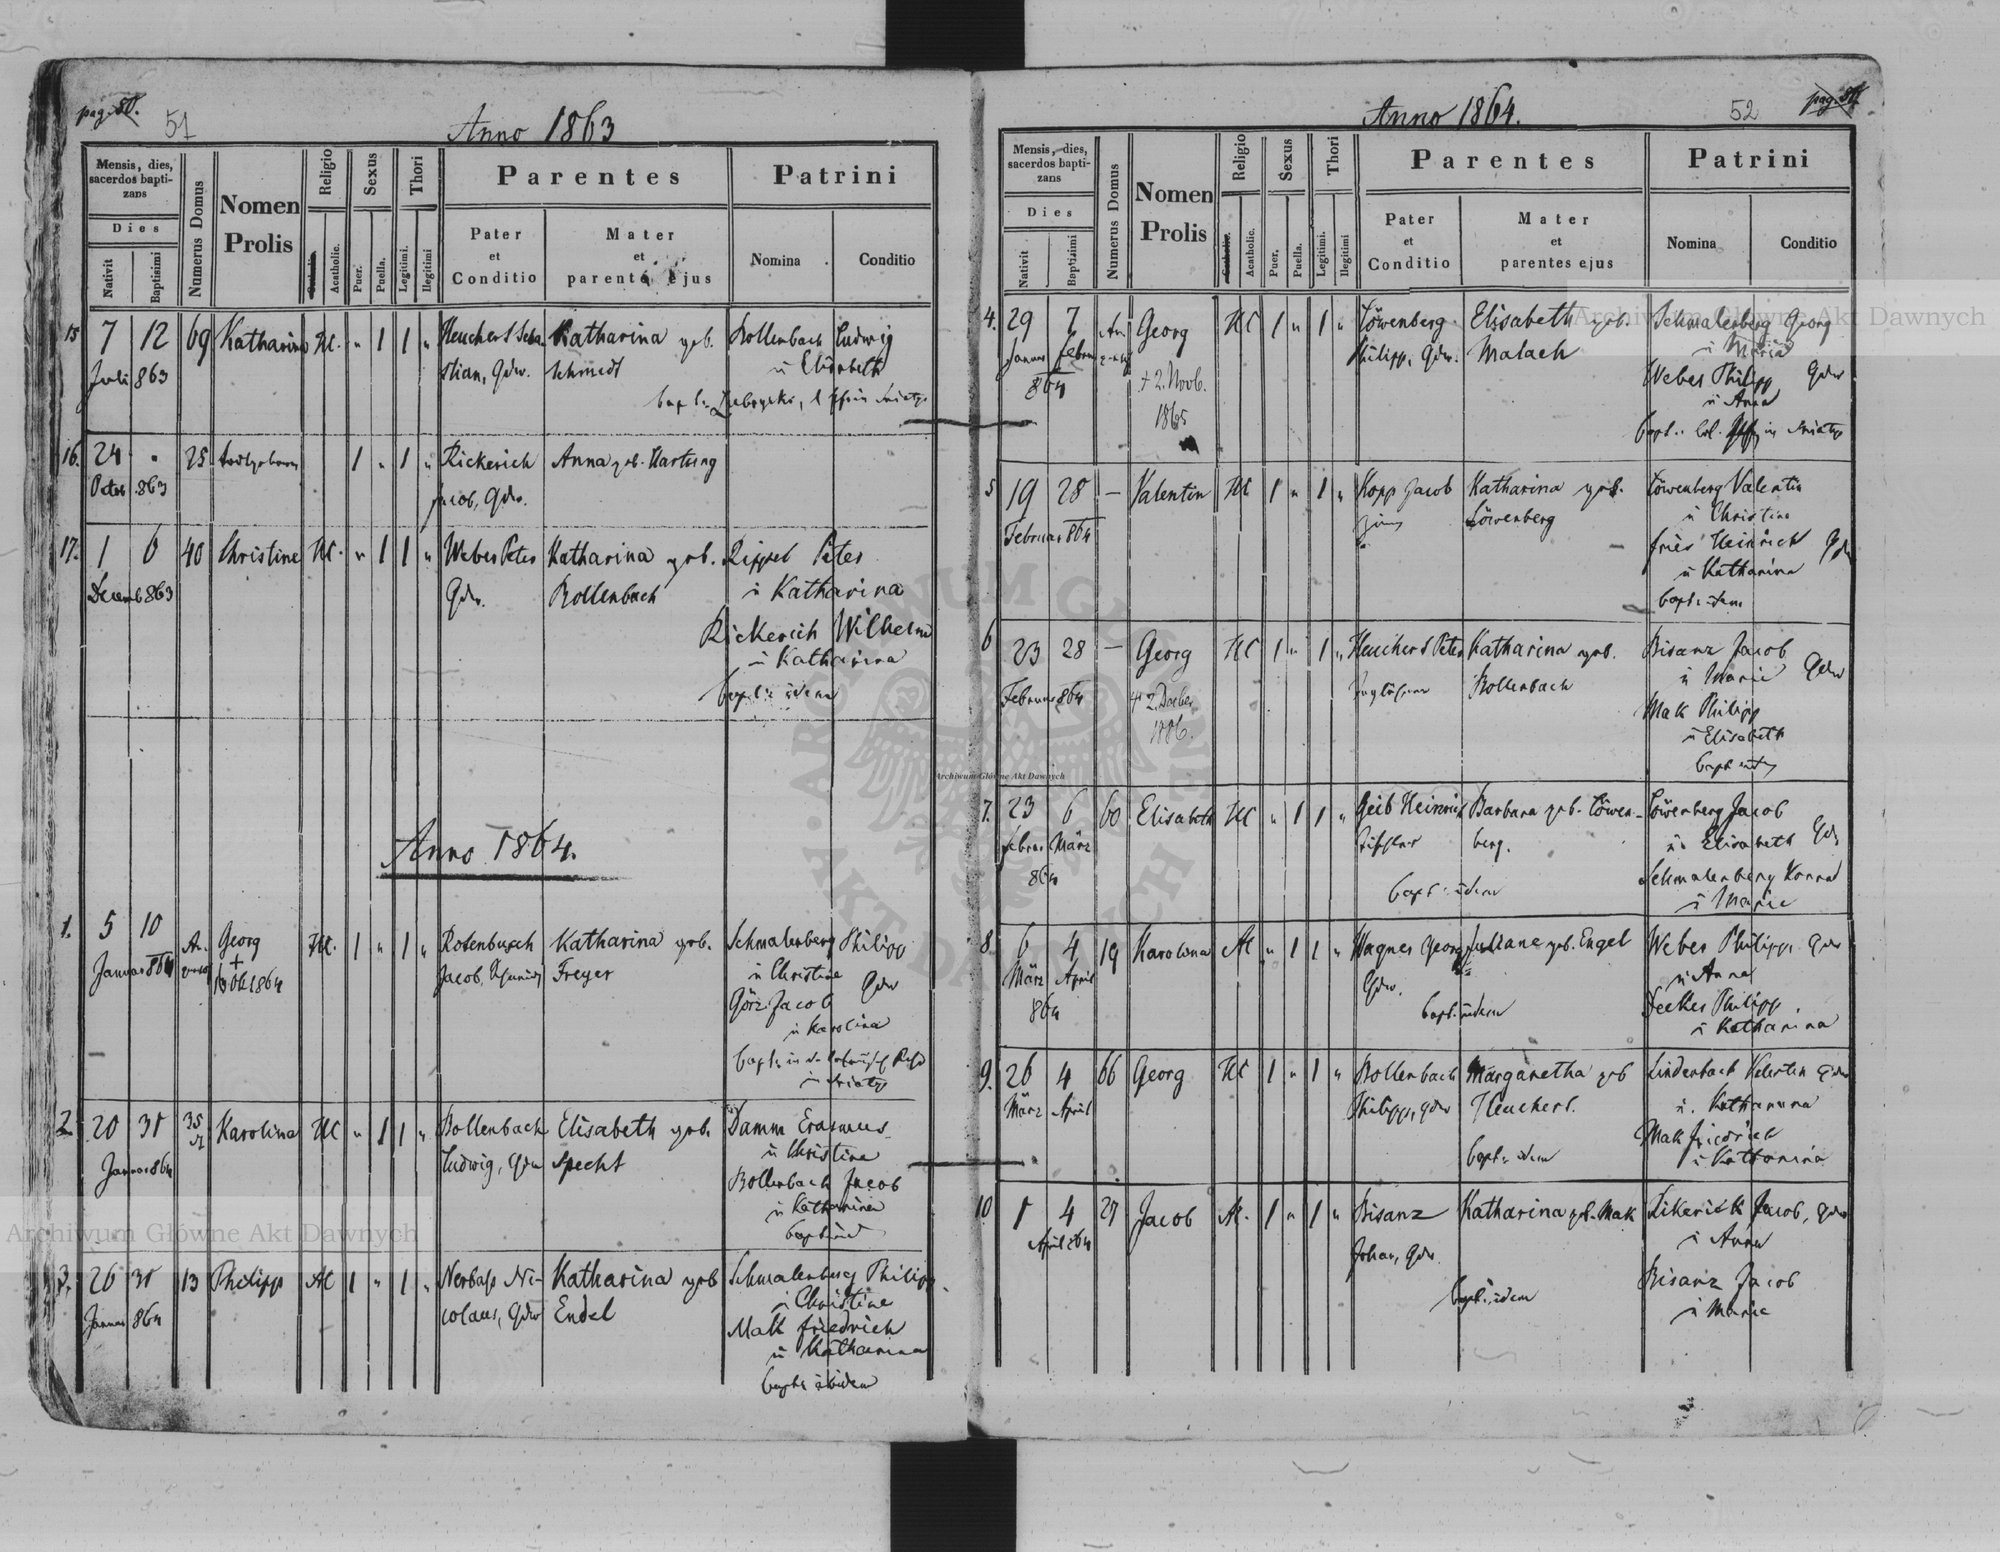 pag. 80.
51
Anno 1863
Mensis, dies, sacerdos baptizans
Dies
Nativit
Baptisimi
Numerus Domus
Nomen Prolis
Religio
Catholic.
Acatholic.
Sexus
Puer.
Puella.
Thori
Legitimi.
Ilegitimi
Parentes
Pater et Conditio
Mater et parentes ejus
Patrini
Nomina
Conditio
15 7 12 69 Katharina HC. " 1 1 " Heuchert Seba- Katharina geb. Bollenbach Ludwig
Juli 863 stian, Gdw. Schmidt u Elisabeth
16. 24 " 25 todtgeboren 1 " 1 " Rickerich Anna geb. Hartung
Octob 863 Jacob, Gdw.
17. 1 6 40 Christine HC. " 1 1 " Weber Peter Katharina geb. Rippel Peter
Decemb 863 Gdw. Bollenbach u Katharina
Rickerich Wilhelm
u Katharina
bapt: idem
Anno 1864.
1. 5 10 Georg HC. 1 " 1 " Rosenbusch Katharina geb. Schmalenberg Philipp
Januar 864 Jacob, Freyer u Christine Gdw
Görz Jacob
u Karolina
2. 20 31 35 Karolina HC " 1 1 " Bollenbach Elisabeth geb. Damm Erasmus
Januar 864 Ludwig, Gdw Specht u Christine
Bollenbach Jacob
u Katharina
3. 26 31 13 Philipp AC 1 " 1 " Nerbass Ni- Katharina geb Schmalenberg Philipp
Januar 864 colaus, Gdw Endel u Christine
Mak Friedrich
u Katharina
bapt: ibidem
Anno 1864.
52
pag. 81
Mensis, dies, sacerdos baptizans
Dies
Nativit
Baptisimi
Numerus Domus
Nomen Prolis
Religio
Catholic.
Acatholic.
Sexus
Puer.
Puella.
Thori
Legitimi.
Ilegitimi
Parentes
Pater et Conditio
Mater et parentes ejus
Patrini
Nomina
Conditio
4. 29 7 Georg HC 1 " 1 " Löwenberg Elisabeth geb. Schmalenberg Georg
Januar Februar Philipp, Gdw. Malach u Maria
864 + 2. Novb. Weber Philipp Gdw
1865 u Anna
5 19 28 — Valentin HC 1 " 1 " Kopp Jacob Katharina geb. Löwenberg Valentin
Februar 864 Löwenberg u Christine
Fries Heinrich Gdw
u Katharina
bapt: idem
6 23 28 — Georg HC 1 " 1 " Heuchert Peter Katharina geb. Bisanz Jacob
Februar 864 + 2. Decber Bollenbach u Marie Gdw
1886. Mak Philipp
u Elisabeth
7. 23 6 60 Elisabeth HC " 1 1 " Geib Heinrich Barbara geb. Löwen- Löwenberg Jacob
Februar März Tischler berg. u Elisabeth Gdw
864 bapt: idem Schmalenberg Konrad
u Marie
8. 6 4 19 Karolina AC " 1 1 " Wagner Georg Juliane geb. Engel Weber Philipp Gdw
März April Gdw. u Anna
864 bapt: idem Decker Philipp
u Katharina
9. 26 4 66 Georg HC 1 " 1 " Bollenbach Margaretha geb Lindenbach Valentin Gdw
März April Philipp, Gdw Heuchert. u. Katharina
Mak Friedrich
bapt: idem u Katharina
10 1 4 27 Jacob AC. 1 " 1 " Bisanz Katharina geb. Mak Rikerick Jacob, Gdw
April 864 Johan, Gdw. u Anna
Bisanz Jacob
bapt: idem u Marie
Archiwum Główne Akt Dawnych
Archiwum Główne Akt Dawnych
Archiwum Główne Akt Dawnych
ARCHIWUM GŁÓWNE • AKT DAWNYCH •